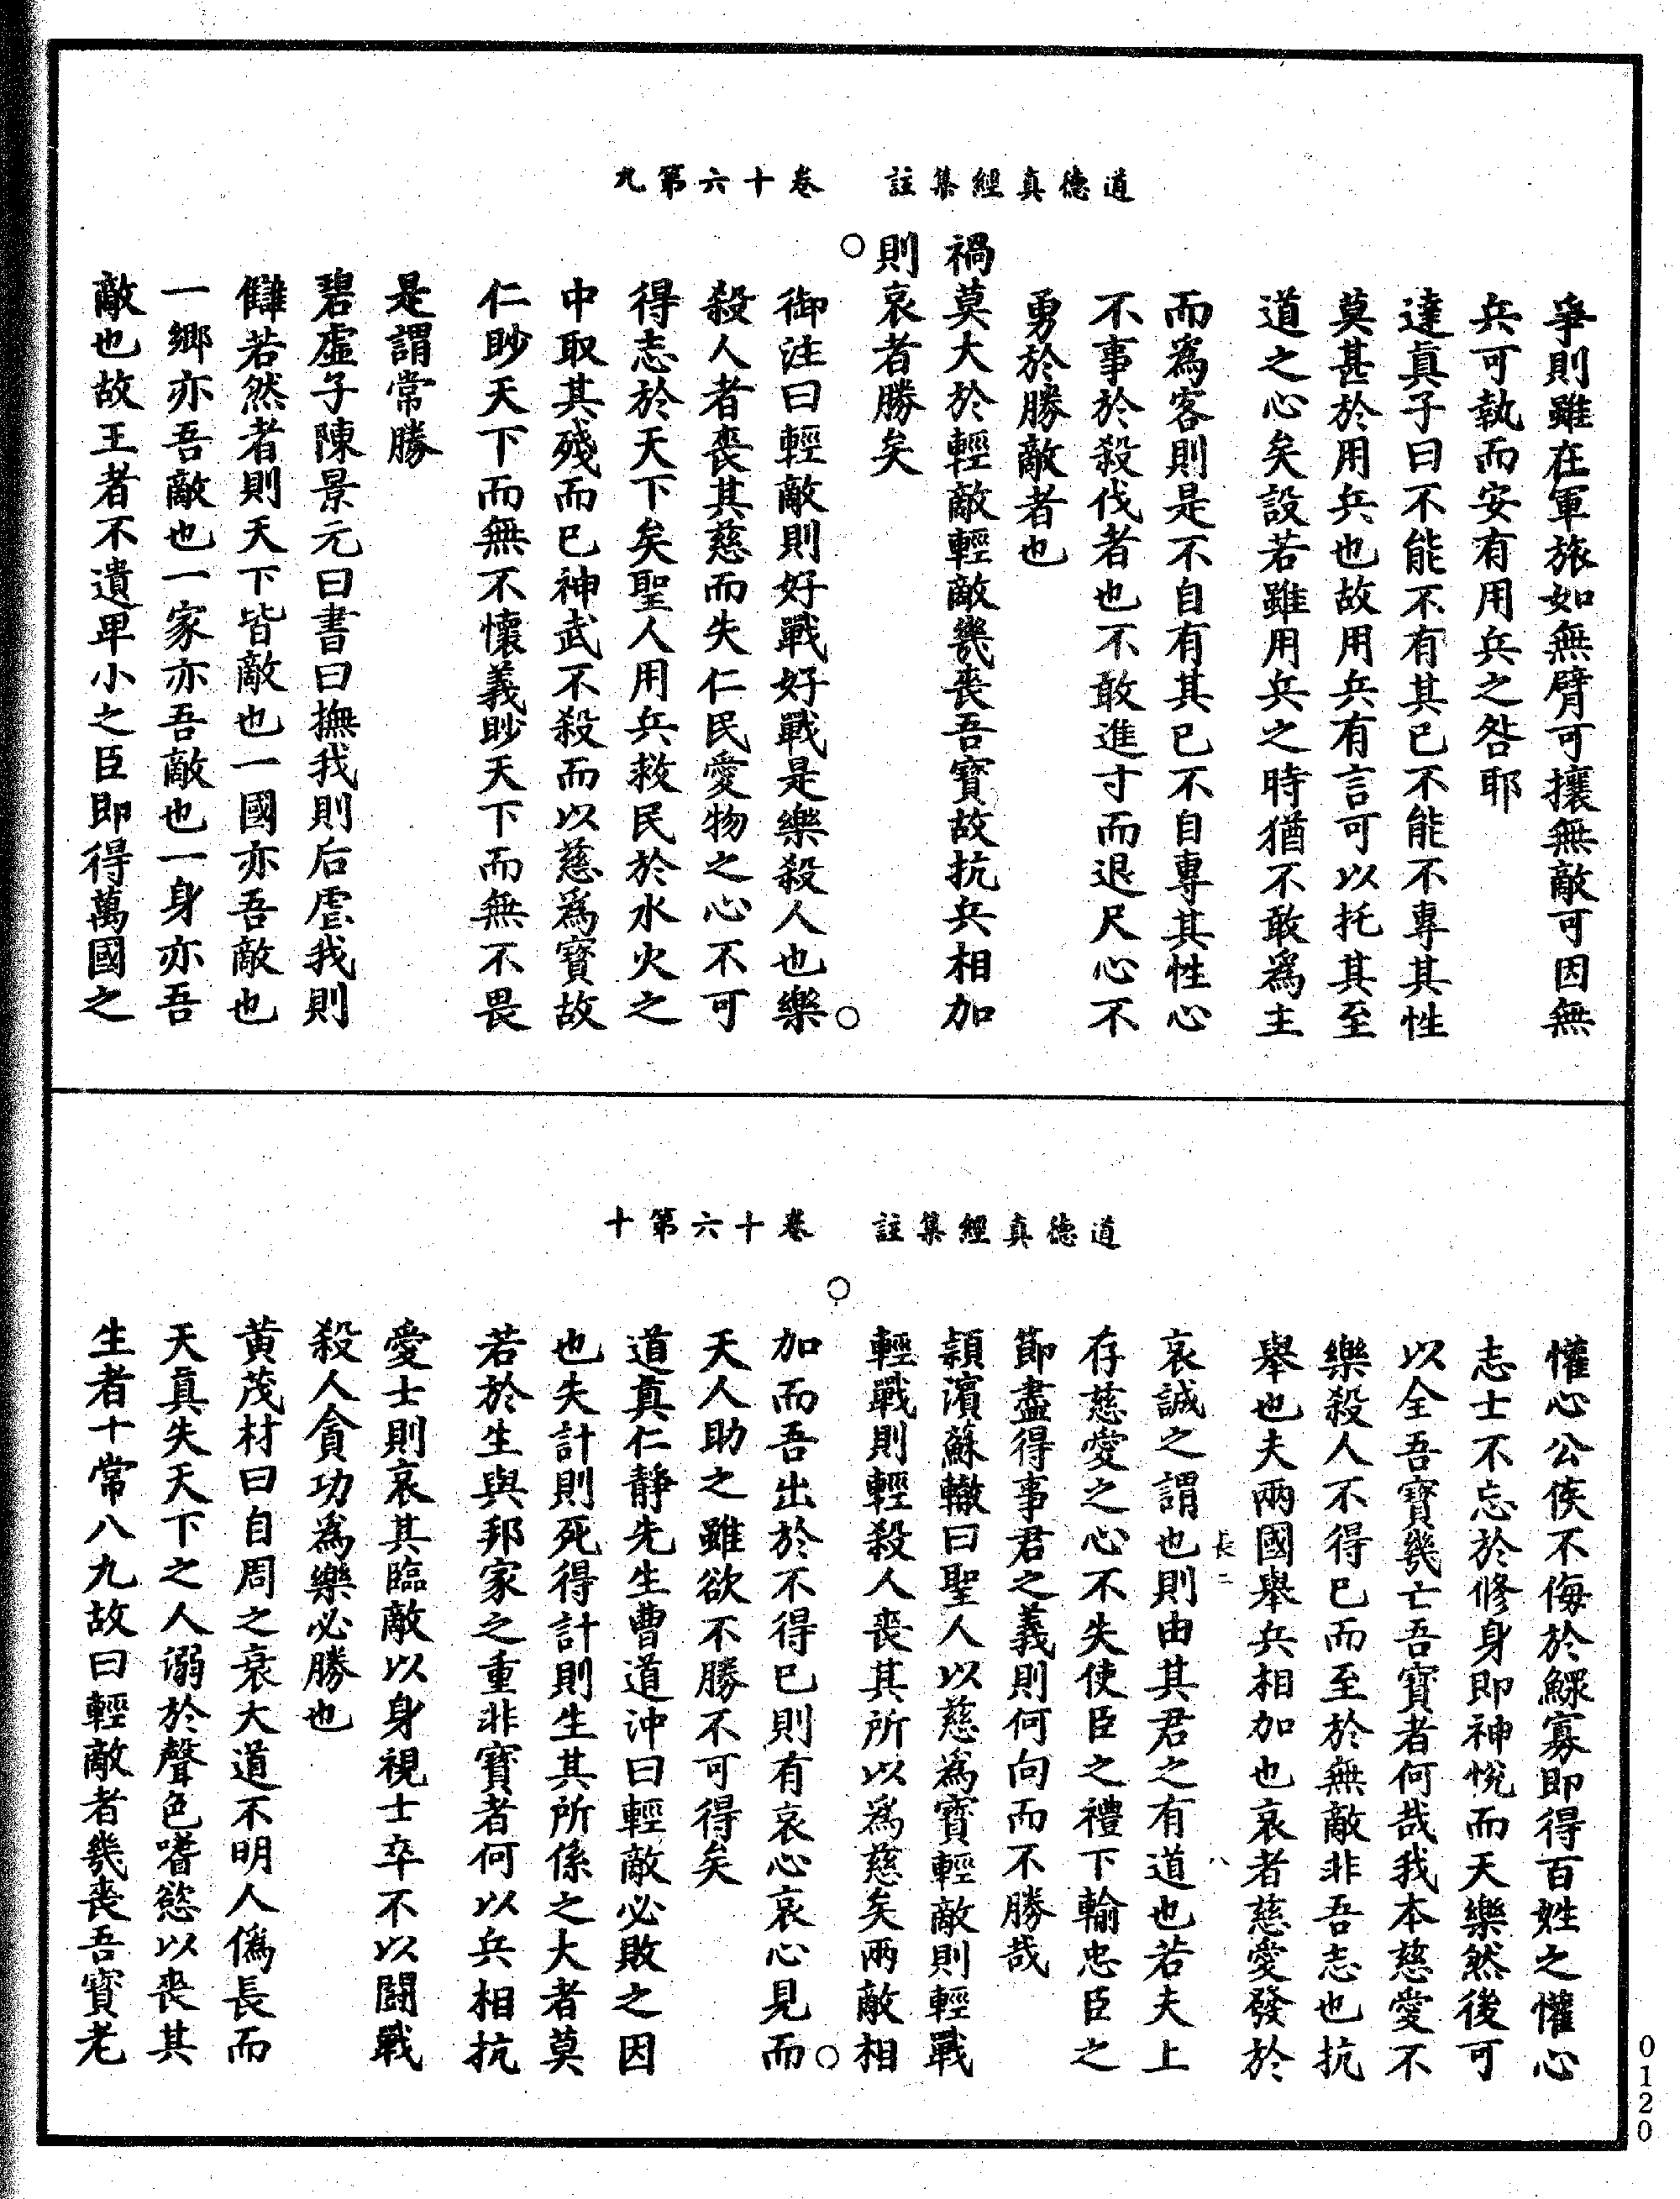 道德真經集註　卷十六第九
爭則雖在軍旅如無臂可攘無敵可因無
兵可執而安有用兵之咎耶
達真子曰不能不有其已不能不專其性
莫甚於用兵也故用兵有言可以托其至
道之心矣設若雖用兵之時猶不敢為主
而為客則是不自有其已不自專其性心
不事於殺伐者也不敢進寸而退尺心不
勇於勝敵者也
禍莫大於輕敵輕敵幾喪吾寶故抗兵相加
則哀者勝矣
御注曰輕敵則好戰好戰是樂殺人也樂
殺人者喪其慈而失仁民愛物之心不可
得志於天下矣聖人用兵救民於水火之
中取其殘而已神武不殺而以慈為寶故
仁眇天下而無不懷義眇天下而無不畏
是謂常勝
碧虛子陳景元曰書曰撫我則后虐我則
讎若然者則天下皆敵也一國亦吾敵也
一鄉亦吾敵也一家亦吾敵也一身亦吾
敵也故王者不遺卑小之臣即得萬國之
道德真經集註　卷十六第十
懽心公侯不侮於鰥寡即得百姓之懽心
志士不忘於修身即神悅而天樂然後可
以全吾寶幾亡吾寶者何哉我本慈愛不
樂殺人不得已而至於無敵非吾志也抗
舉也夫兩國舉兵相加也哀者慈愛發於
長二　八
哀誠之謂也則由其君之有道也若夫上
存慈愛之心不失使臣之禮下輸忠臣之
節盡得事君之義則何向而不勝哉
潁濱蘇轍曰聖人以慈為寶輕敵則輕戰
輕戰則輕殺人喪其所以為慈矣兩敵相
加而吾出於不得已則有哀心哀心見而
天人助之雖欲不勝不可得矣
道真仁靜先生曹道沖曰輕敵必敗之因
也失計則死得計則生其所係之大者莫
若於生與邦家之重非寶者何以兵相抗
愛士則哀其臨敵以身視士卒不以鬪戰
殺人貪功為樂必勝也
黃茂材曰自周之衰大道不明人偽長而
天真失天下之人溺於聲色嗜慾以喪其
生者十常八九故曰輕敵者幾喪吾寶老
0120